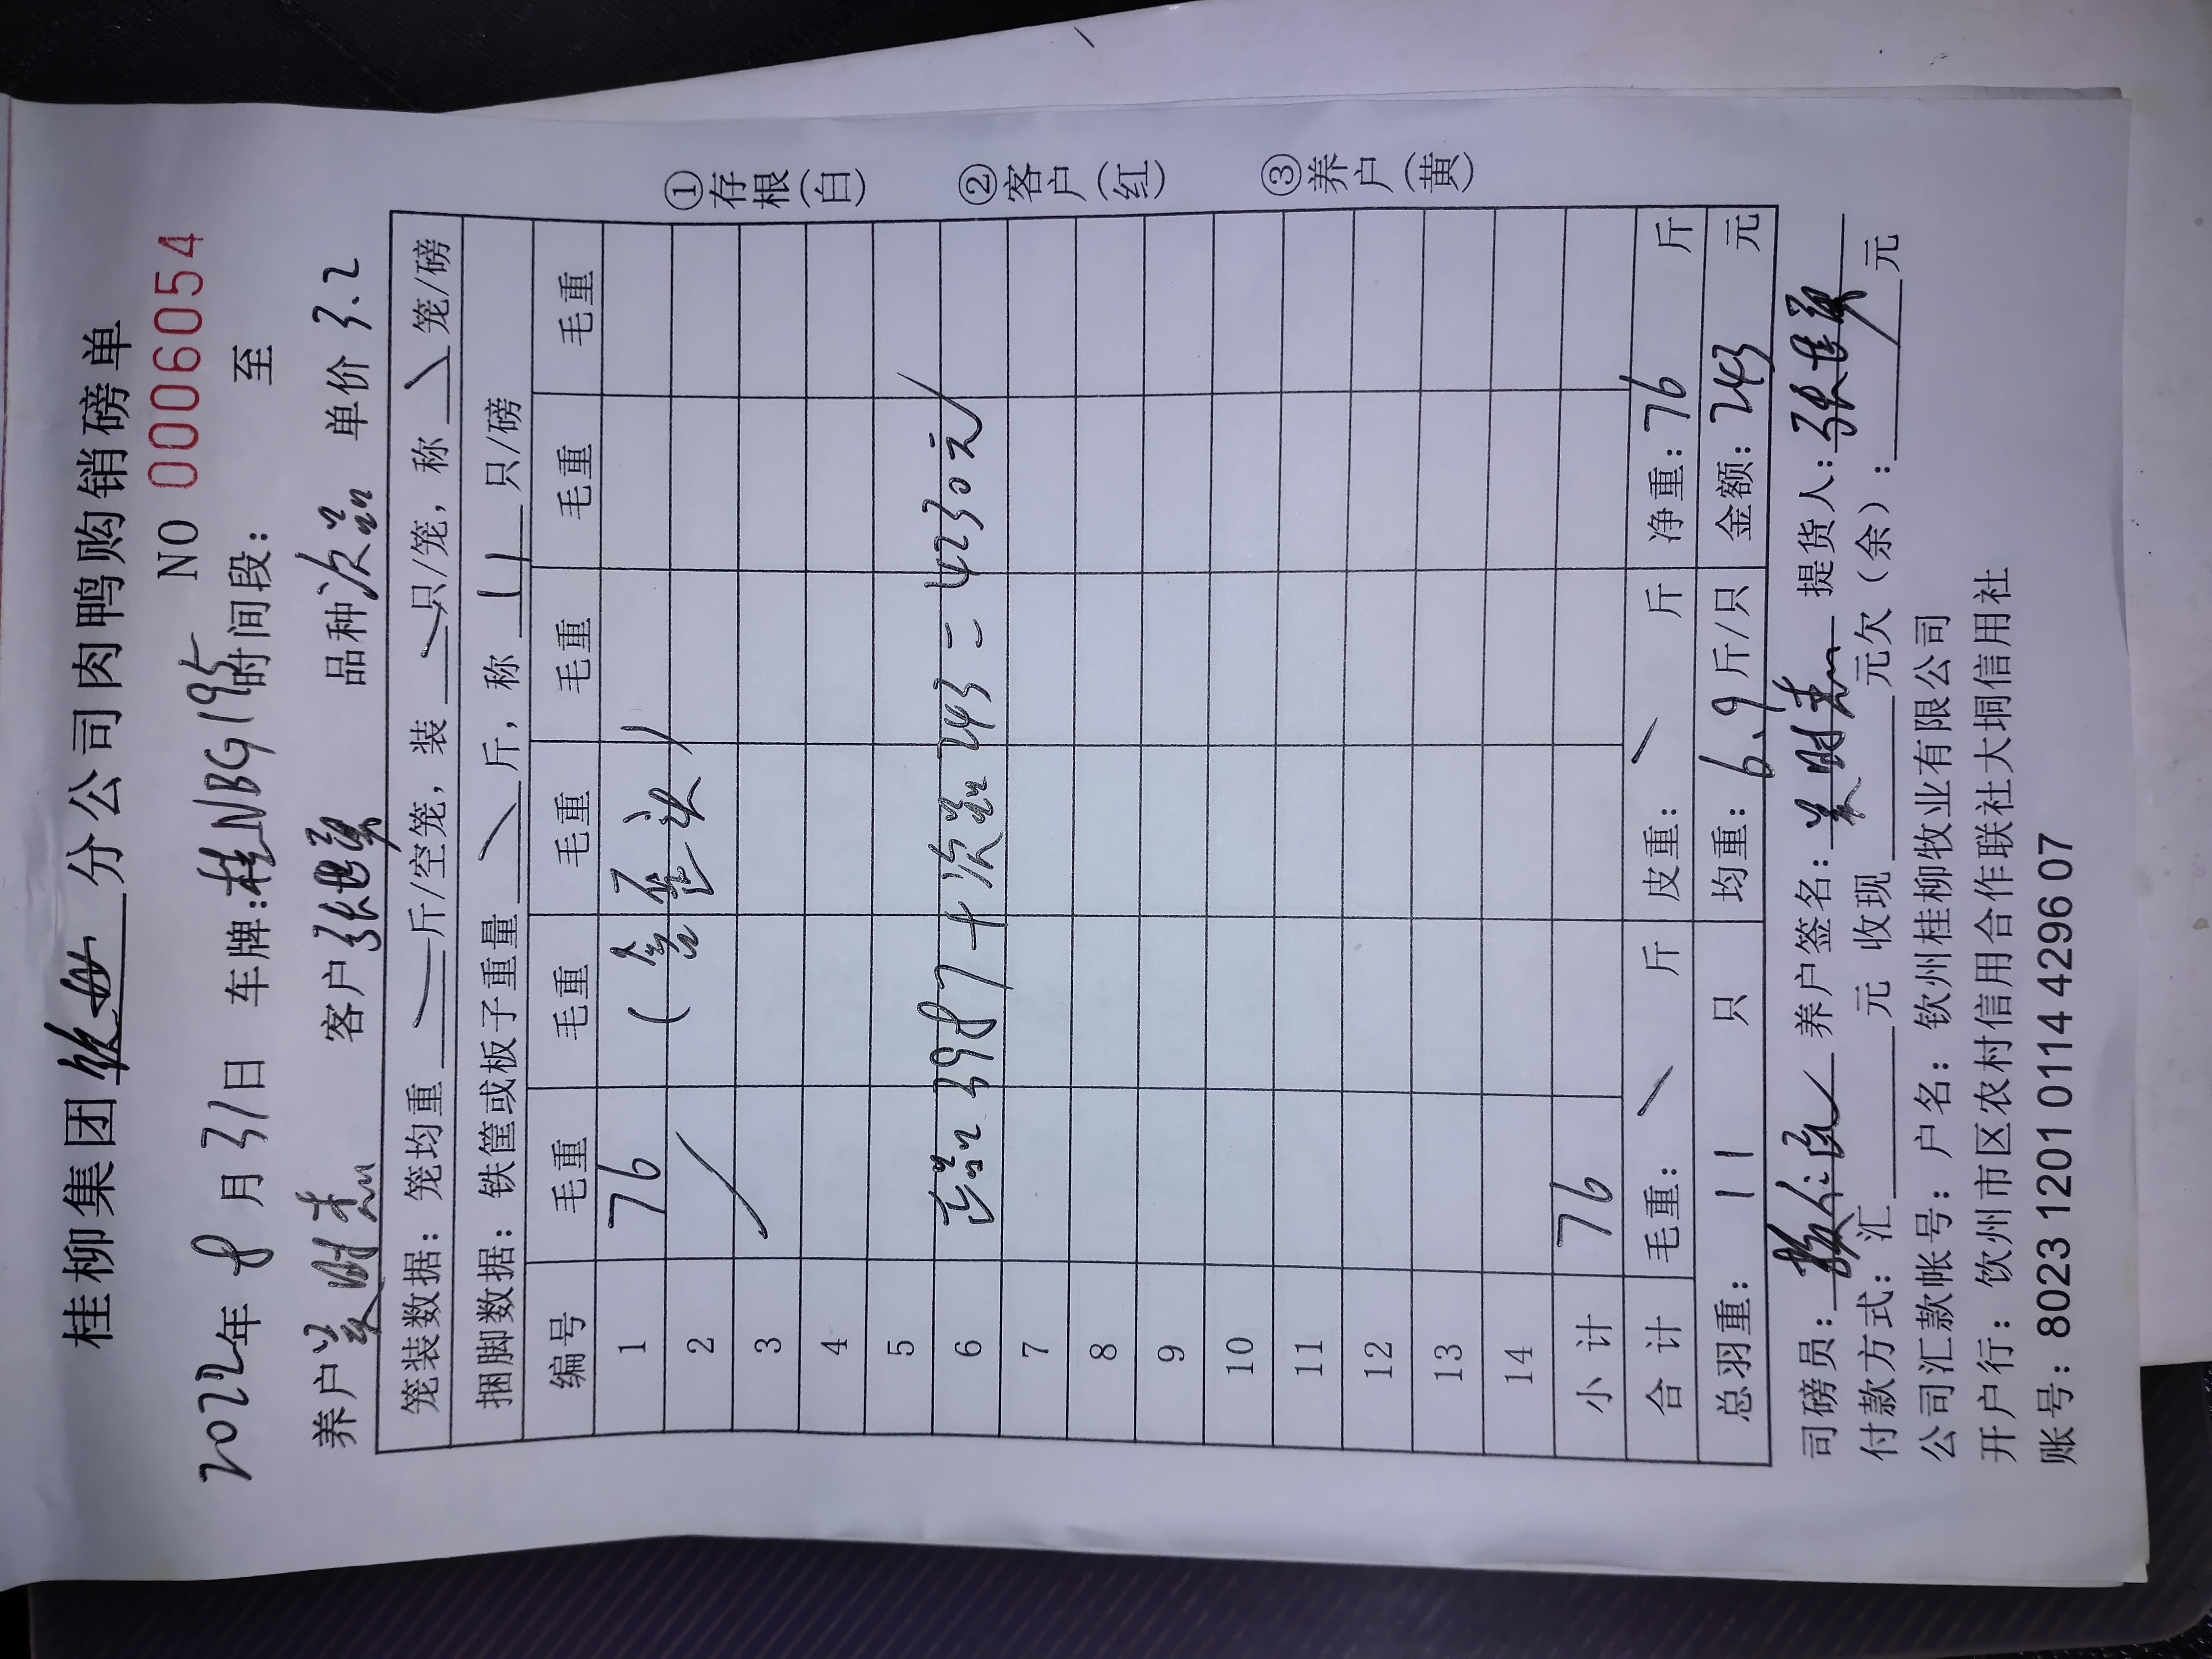 桂柳集团 钦州 分公司肉鸭购销磅单
NO 0006054
2022年 8 月 31日 车牌:桂NBG195 时间段: 至
养户 客户 张世 品种 次品 单价 3.2
笼装数据: 笼均重 斤/空笼, 装 只/笼, 称 笼/磅
捆脚数据: 铁筐或板子重量 斤, 称 11 只/磅
编号 毛重 毛重 毛重 毛重 毛重 毛重
1 76 (
2
3
4
5
6 正品 3987 + 次品 243 = 4230元
7
8
9
10
11
12
13
14
小计 76
合计 毛重: 斤 皮重: 斤 净重: 76 斤
总羽重: 11 只 均重: 6.9 斤/只 金额: 243 元
①存根(白)
②客户(红)
③养户(黄)
司磅员: 养户签名: 提货人: 张世
付款方式: 汇 元 收现 元欠(余): 元
公司汇款帐号: 户名: 钦州桂柳牧业有限公司
开户行: 钦州市区农村信用合作联社大垌信用社
账号: 8023 1201 0114 4296 07